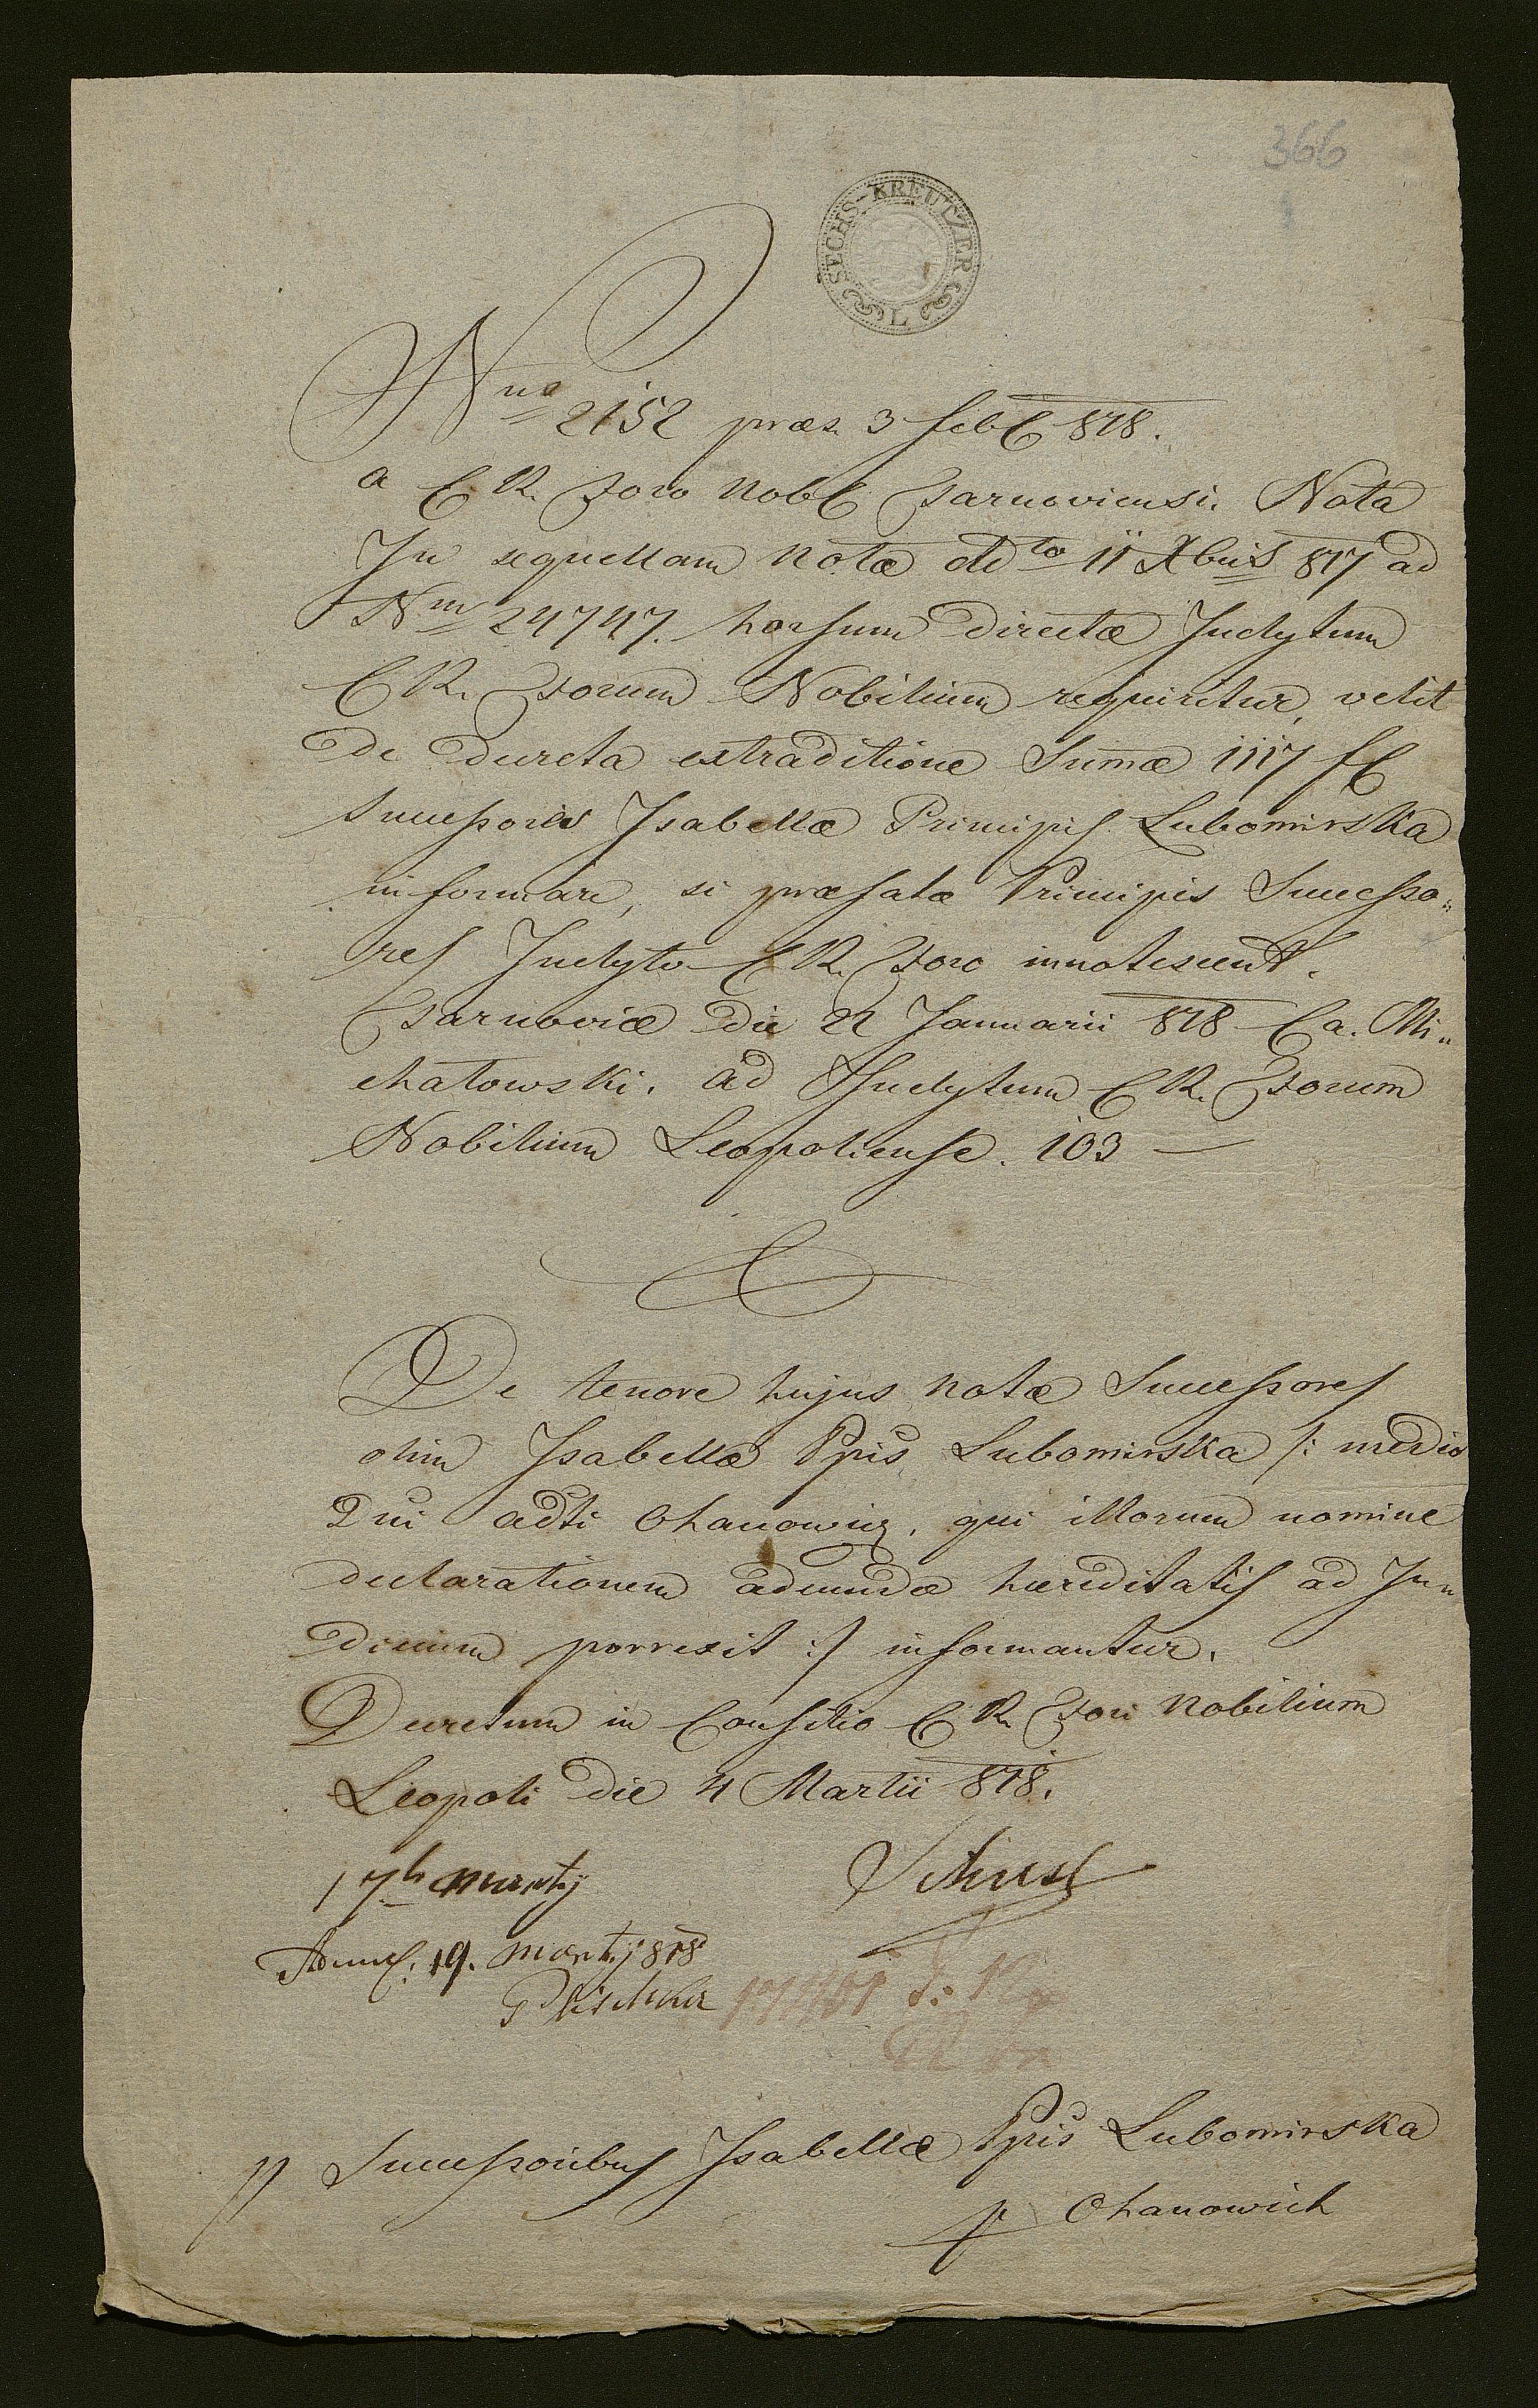 366
SECHS-KREUTZER
L
Nus 2152 præs. 3 febr 818.
a C R. Foro Nobl Tarnoviensi. Nota
In sequellam Notæ ddto 11 Xbris 817 ad
Nm 24747. horsum directæ Inclytum
C R. Forum Nobilium requiritur, velit
de decreta extraditione Sum̄æ 1117 fl
Successores Isabellæ Principis Lubomirska
informare, si præfatæ Principis Successo„
res Inclyto C R. Foro innotescunt.
Tarnoviæ die 22 Januarii 818 Ca. Mi„
chatowski. ad Inclytum C R. Forum
Nobilium Leopoliense. 103 —
De tenore hujus Notæ Successores
olim Isabellæ Ppis Lubomirska /: medio
Dni adti Ohanowicz, qui illorum nomine
declarationem adeundæ hæreditatis ad Ju„
dicium porrexit :/ informantur.
Decretum in Consilio C R. Fori Nobilium
Leopoli die 4 Martii 818.
17 h Martij
19. Martij 818
pp Successoribus Isabellæ Ppis Lubomirska
p Ohanowich